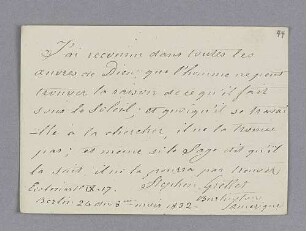 94
J'ai reconnu dans toutes les
œuvres de Dieu, que l'homme ne peut
trouver la raison de ce qu'il fait
sous le Soleil; et quoiqu'il se travai-
-lle à la chercher, il ne la trouve
pas; et même si le Sage dit qu'il
la sait, il ne la pourra pas trouver,
Stephen Grellet
Berlin 24 du 3me mois 1832. Burlington
Amerique